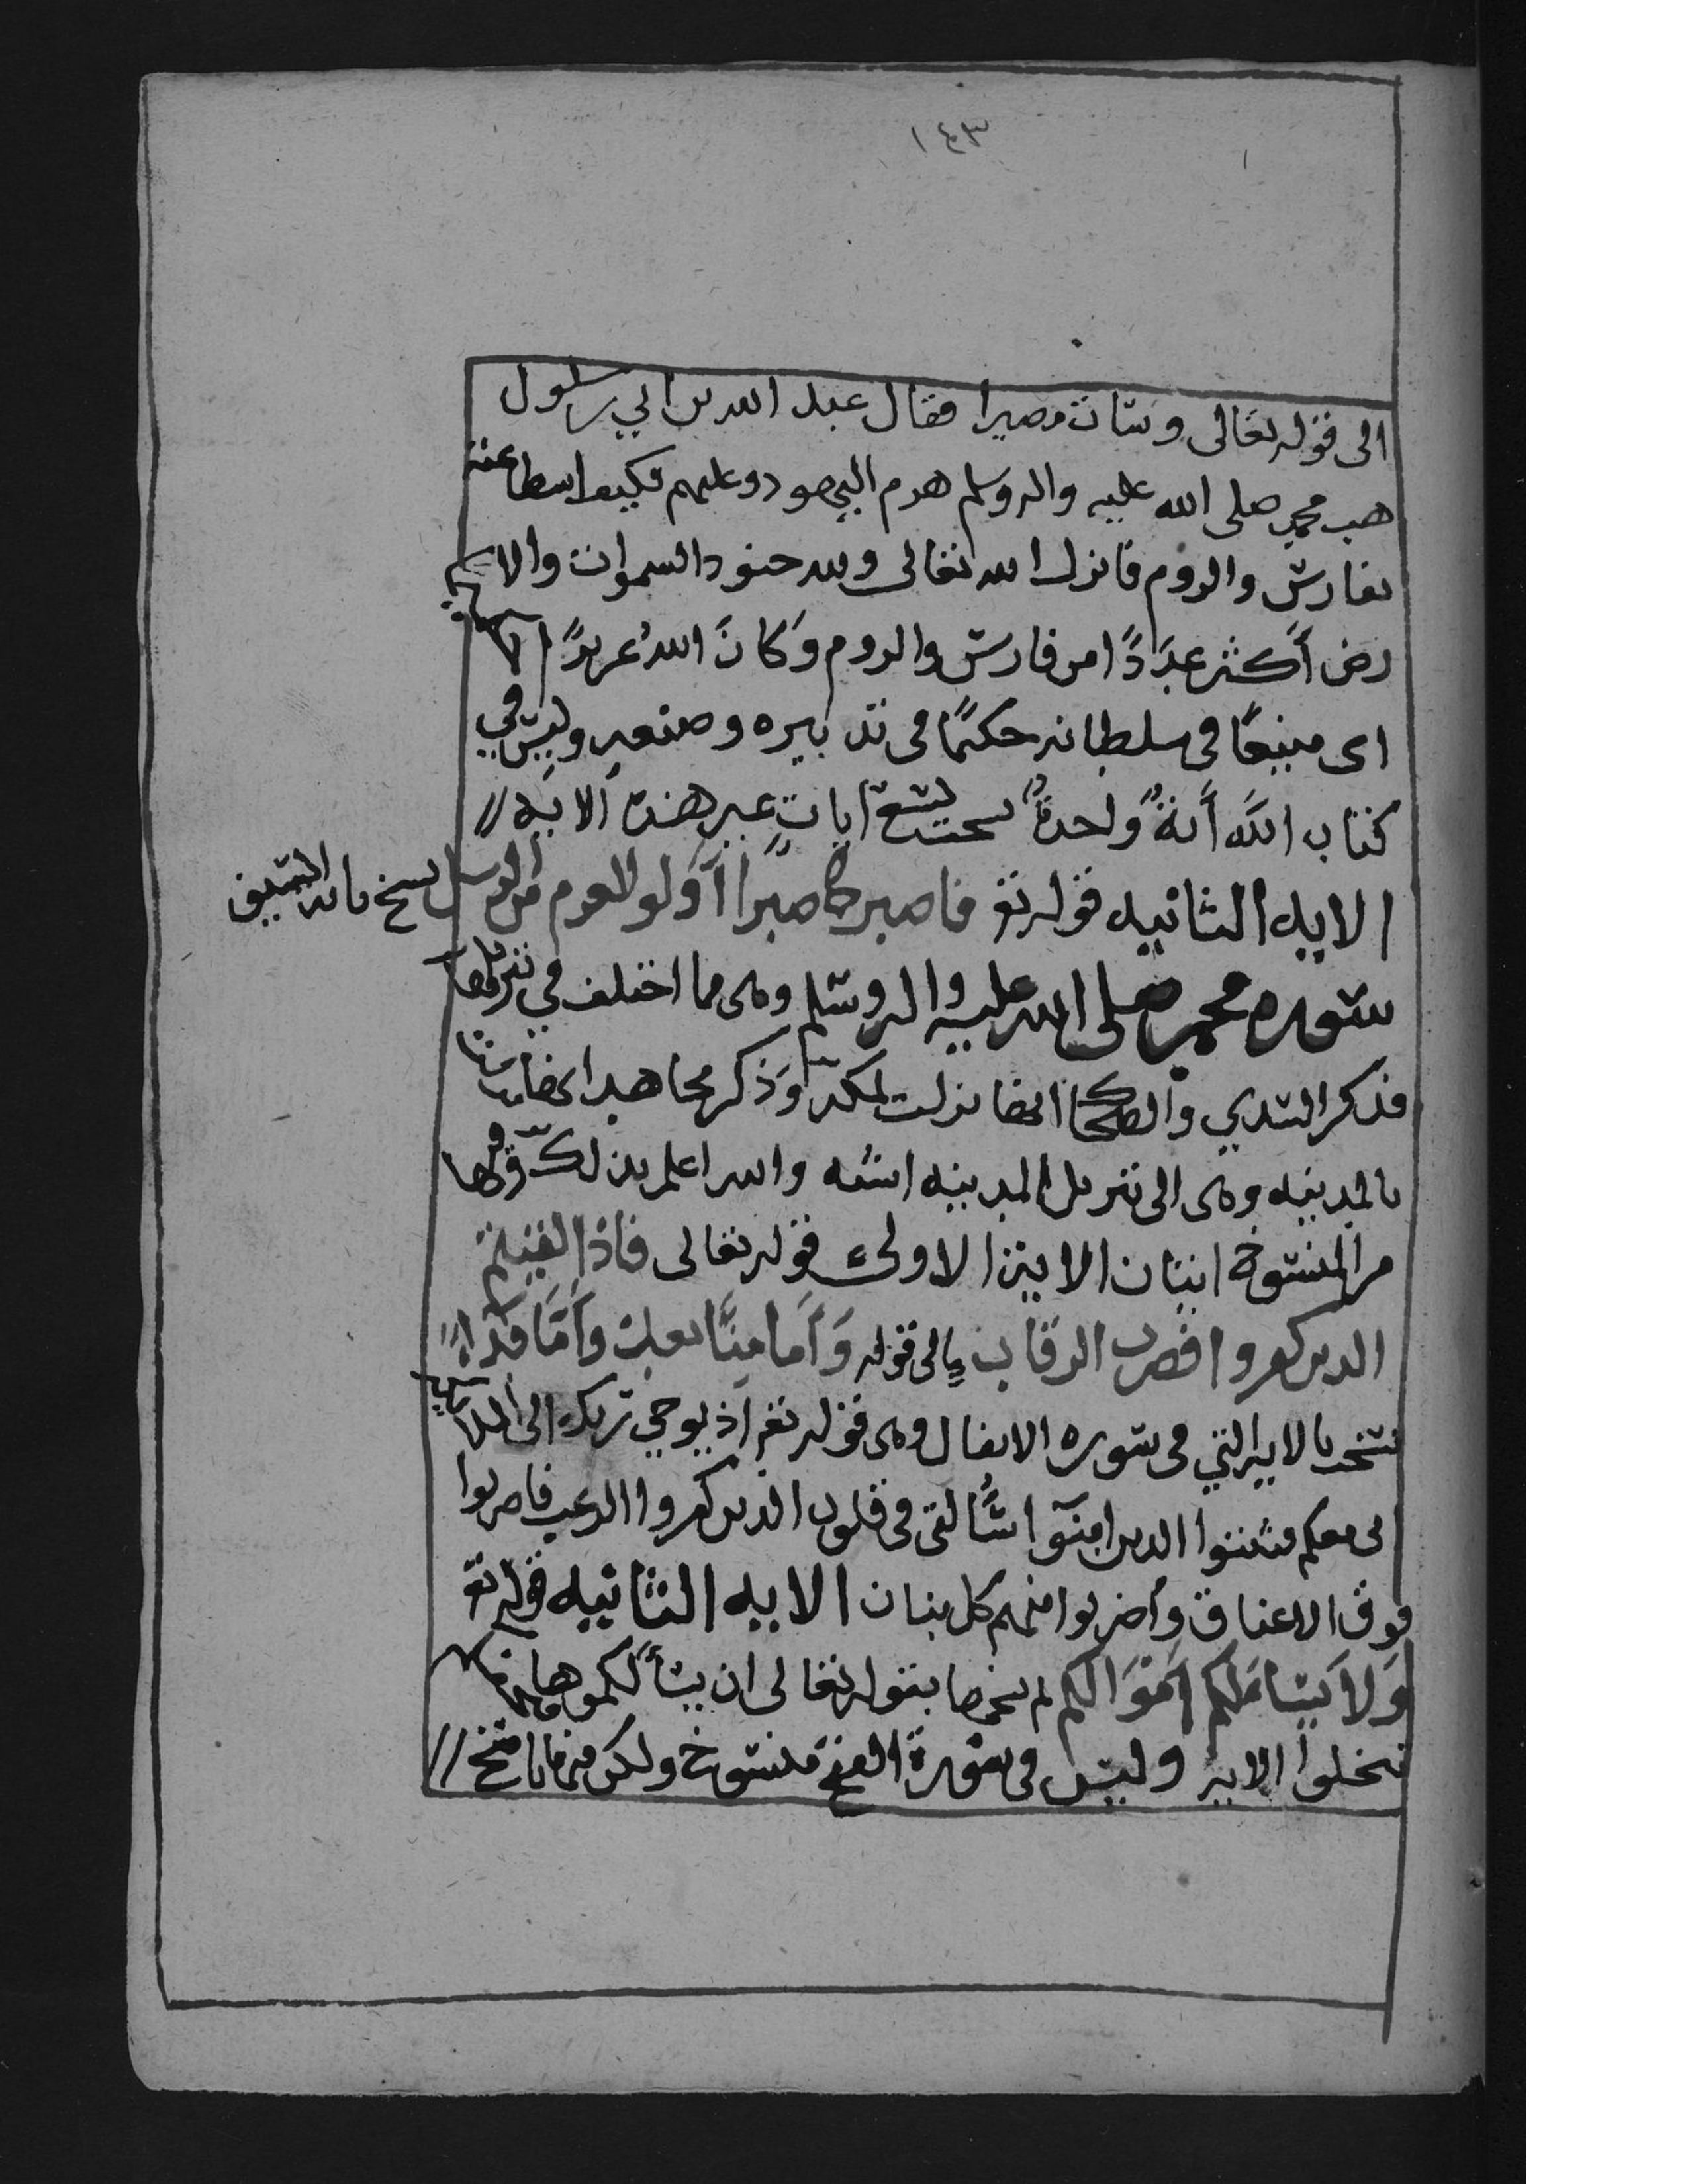 ١٤٣
الى قوله تعالى وسات مصيرا فقال عبد الله بن ابي سلول
هب محمد صلى الله عليه واله وسلم هزم اليهود وعليهم فكيف استطاعته
بفارس والروم فانزل الله تعالى ولله جنود السموات والا
رض أكثر عددًا من فارس والروم وَكانَ اللهُ عزيزًا
اى منيعًا فى سلطانه حكيمًا فى تدبيره وصنعه وليس في
كتاب اللّه أية واحدة نسخت تسع ايات غير هذه الايه
الايه الثانيه قوله تع فاصبر كما صبر اولو العزم من الرسل نسخ باية السيف
سوره محمد صلى الله عليه واله وسلم وهى مما اختلف في تنزيلها
فذكر السدي والضحاك انها نزلت بمكه وَذكر مجاهد انها نزلت
بالمدينه وهى الى تنزيل المدينه اشبه والله اعلم بذلك وفيها
من المنسوخ ايتان الايه الاولى قوله تعالى فاذا لقيتم
الذين كفروا فضرب الرقاب الى قوله وَأمَا منًّا بعد وَأمَّا فدآء
نسخت بالايه التي فى سوره الانفال وهى قوله تع اذ يوحي ربك الى الملآئكه
انى معكم فثبتوا الذين امنوآ سألقى فى قلوب الذين كفروا الرعب فاضربوا
فوق الاعناق وأضربوا منهم كل بنان الايه الثانيه قوله تع
وَلاَ يسَاَلكم اَموَالكم نسخها بقوله تعالى ان يسألكموها
تبخلوا الايه وليس فى سورة الفتح منسوخ ولكن فيها ناسخ